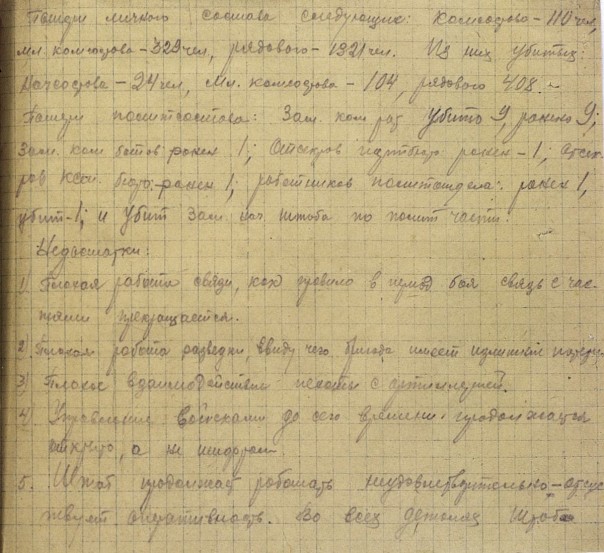 Потери личного состава следующие: Комсостава – 110 чел,
мл комсостава – 329 чел, рядового – 1321 чел. Из них убитых:
Начсостава – 24 чел, мл. комсостава – 104, рядового 408. –
Потери политсостава: Зам. ком рот убито 9, ранено 9;
Зам. ком батов ранен 1; Отсекров партбюро ранен – 1; Отсек-
ров КСМ. бюро – ранен 1; работников политотдела: ранен 1,
убит – 1; и убит Зам нач. штаба по полит части.
Недостатки:
1) Плохая работа связи, как правило в боя связь с час-
тями прекращается.
2) Плохая работа разведки, ввиду чего бригада имеет излишние потери.
3) Плохое взаимодействие пехоты с артиллерией.
4) Управление войсками до сего времени продолжается
открыто, а не шифром
5. Штаб продолжает работать неудовлетворительно – отсут-
ствует оперативность. Во всех деталях Штаба